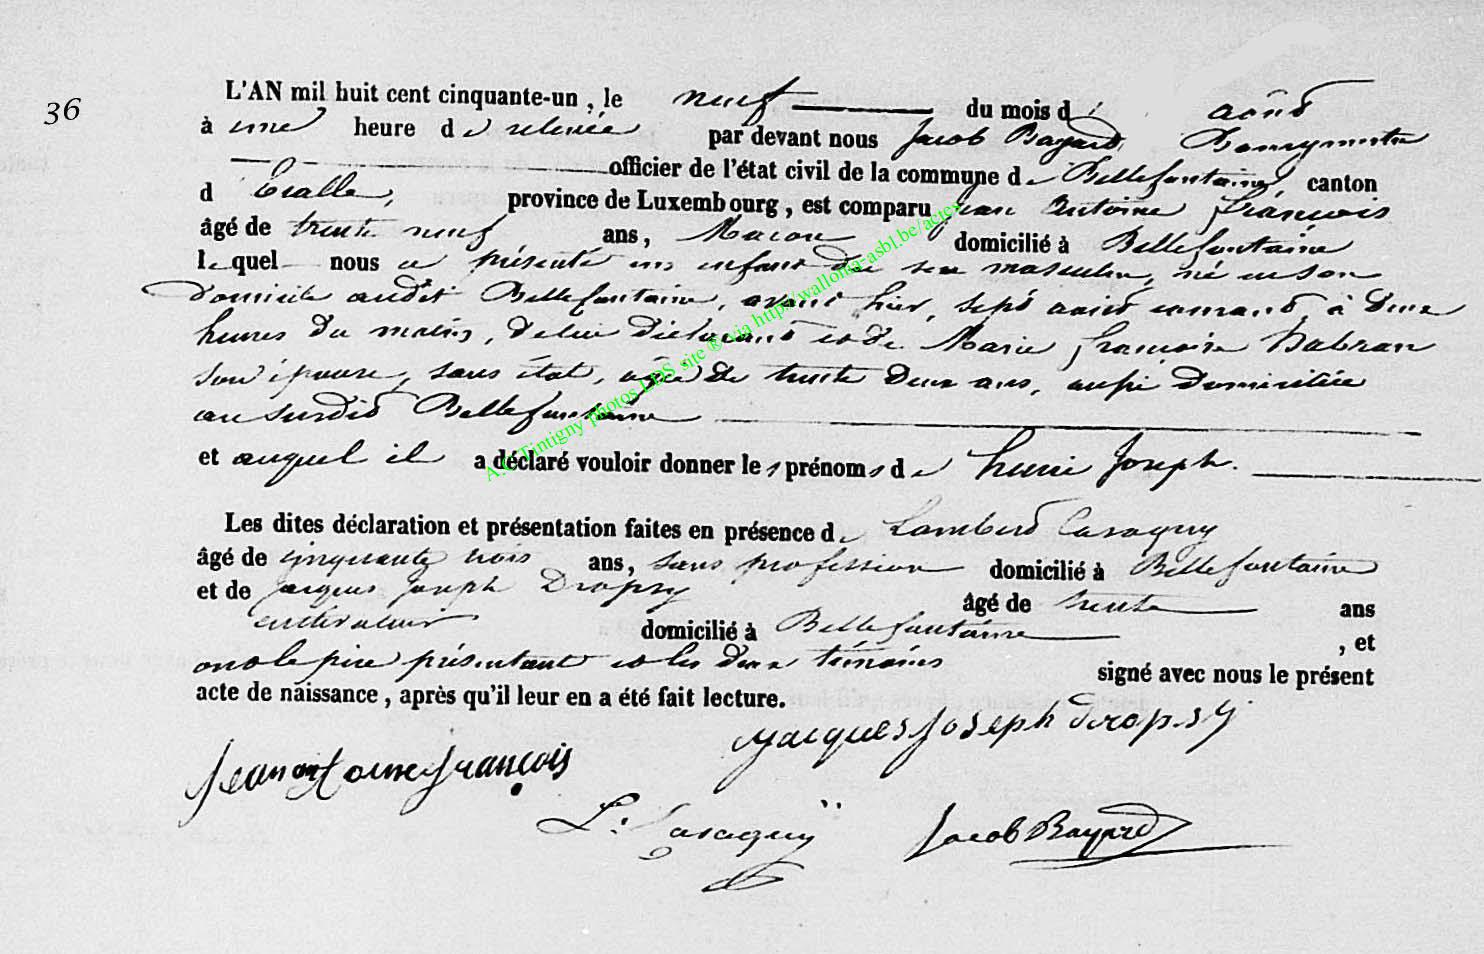 36
L'AN mil huit cent cinquante-un, le neuf du mois d' août
à une heure de relevée par devant nous Jacob Bayard, Bourgmestre
officier de l'état civil de la commune de Bellefontaine, canton
d'Etalle, province de Luxembourg, est comparu Jean Antoine françois
âgé de trente neuf ans, Macon domicilié à Bellefontaine
lequel nous a présenté un enfant du sexe masculin, né en son
domicile audit Bellefontaine, avant hier, sept août courant, à deux
heures du matin, de lui déclarant et de Marie françoise Habran
son épouse, sans état, agée de trente deux ans, aussi domiciliée
au susdit Bellefontaine
et auquel il a déclaré vouloir donner les prénoms de henri Joseph.
Les dites déclaration et présentation faites en présence de Lambert Casaquy
âgé de cinquante trois ans, sans profession domicilié à Bellefontaine
et de Jacques Joseph Dropsy âgé de trente ans
cultivateur domicilié à Bellefontaine, et
ont le père présentant et les deux témoins signé avec nous le présent
acte de naissance, après qu'il leur en a été fait lecture.
Jacques Joseph dropsy
Jean antoine françois
L. Casaquÿ Jacob Bayard
A.C. Tintigny photos LDS site ® via http://wallonia-asbl.be/actes